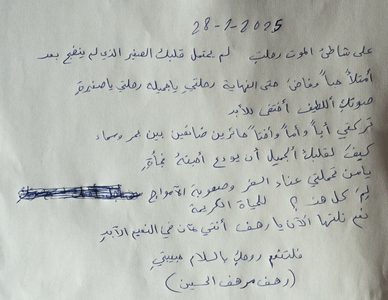 28-2-2025
على شاطئ الموت رحلتِ لم يحتمل قلبك الصغير الذي لم ينضج بعد
أمتلأ حباً وفاضَ حتى النهاية رحلتي ياجميله رحلتي ياصغيرة
صوتك اللطيف أختفى للأبد
تركتي أباً وأماً وأختاً حائرين ضائعين بين بحر وسماء
كيفَ لقلبك الجميل أن يودع أحبتهُ فجأةً
يامن تحملتي عناء السفر وصعوبة الأمواج
لِمَ كل هذا ؟ للحياة الكريمة
نعم نلتها الآن يا رهف أنتي الآن في النعيم الأبدي
فلتنعم روحك بالسلام حبيبتي
(رهف مرهف الحسين)